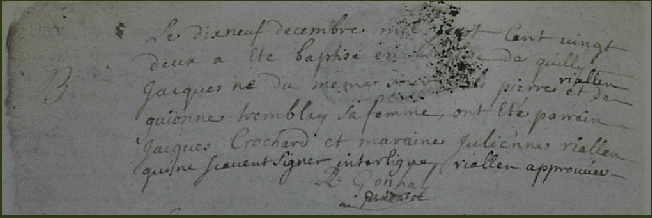 B
Le dixneuf decembre mil sept cent vingt
deux a ete baptisé en de quilly
Jacques né du meme pierre riallen et de
guionne tremblay sa femme, ont été parrain
Jacques Crochard et maraine Julienne riallen
qui ne scavent signer interligne riallen approuvée